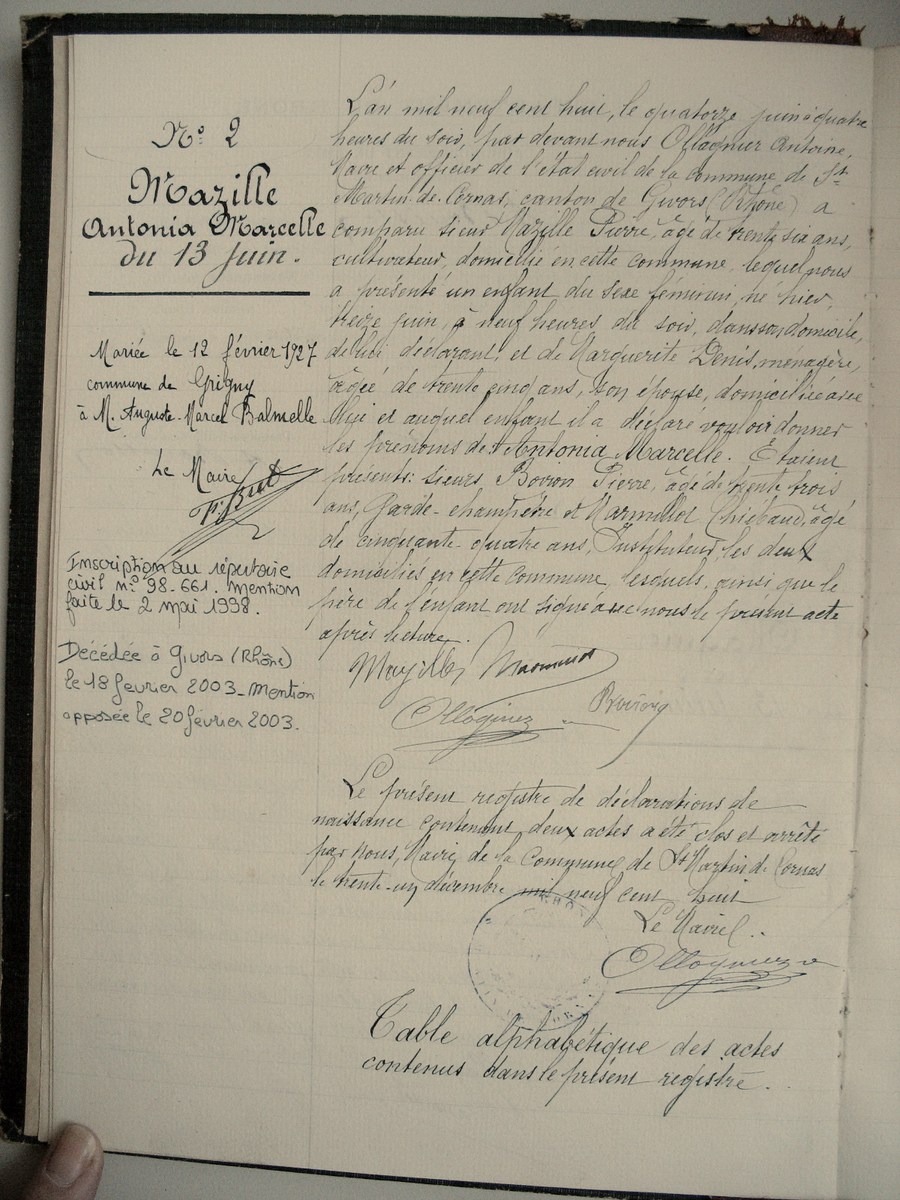 N° 2
Mazille
Antonia Marcelle
du 13 Juin.
Mariée le 12 février 1927
commune de Grigny
à M. Auguste-Marcel Balmelle
Le Maire
Inscription au répertoire
civil n° 98-661. Mention
faite le 2 mai 1998.
Décédée à Givors (Rhône)
le 18 février 2003 - Mention
apposée le 20 février 2003.
L'an mil neuf cent huit, le quatorze juin à quatre
heures du soir, par devant nous Ollagnier Antoine,
Maire et officier de l'état civil de la commune de St
Martin de Cornas, canton de Givors (Rhône) a
comparu sieur Mazille Pierre, âgé de trente six ans,
cultivateur, domicilié en cette commune, lequel nous
a présenté un enfant du sexe féminin, né hier,
treize juin, à neuf heures du soir, dans son domicile,
de lui déclarant, et de Marguerite Denis, ménagère,
âgée de trente cinq ans, son épouse, domiciliée avec
lui et auquel enfant il a déclaré vouloir donner
les prénoms de Antonia Marcelle. Étaient
présents: sieurs Boiron Pierre, âgé de trente trois
ans, Garde-champêtre et Marmillot Thiébaud, âgé
de cinquante-quatre ans, Instituteur, les deux
domiciliés en cette commune, lesquels, ainsi que le
père de l'enfant ont signé avec nous le présent acte
après lecture.
Mazille Marmillot
Ollagnier Boiron
Le présent registre de déclarations de
naissance contenant deux actes a été clos et arrêté
par nous, Maire de la Commune de St Martin de Cornas
le trente-un décembre mil neuf cent huit
Le Maire
Ollagnier
Table alphabétique des actes
contenus dans le présent registre.